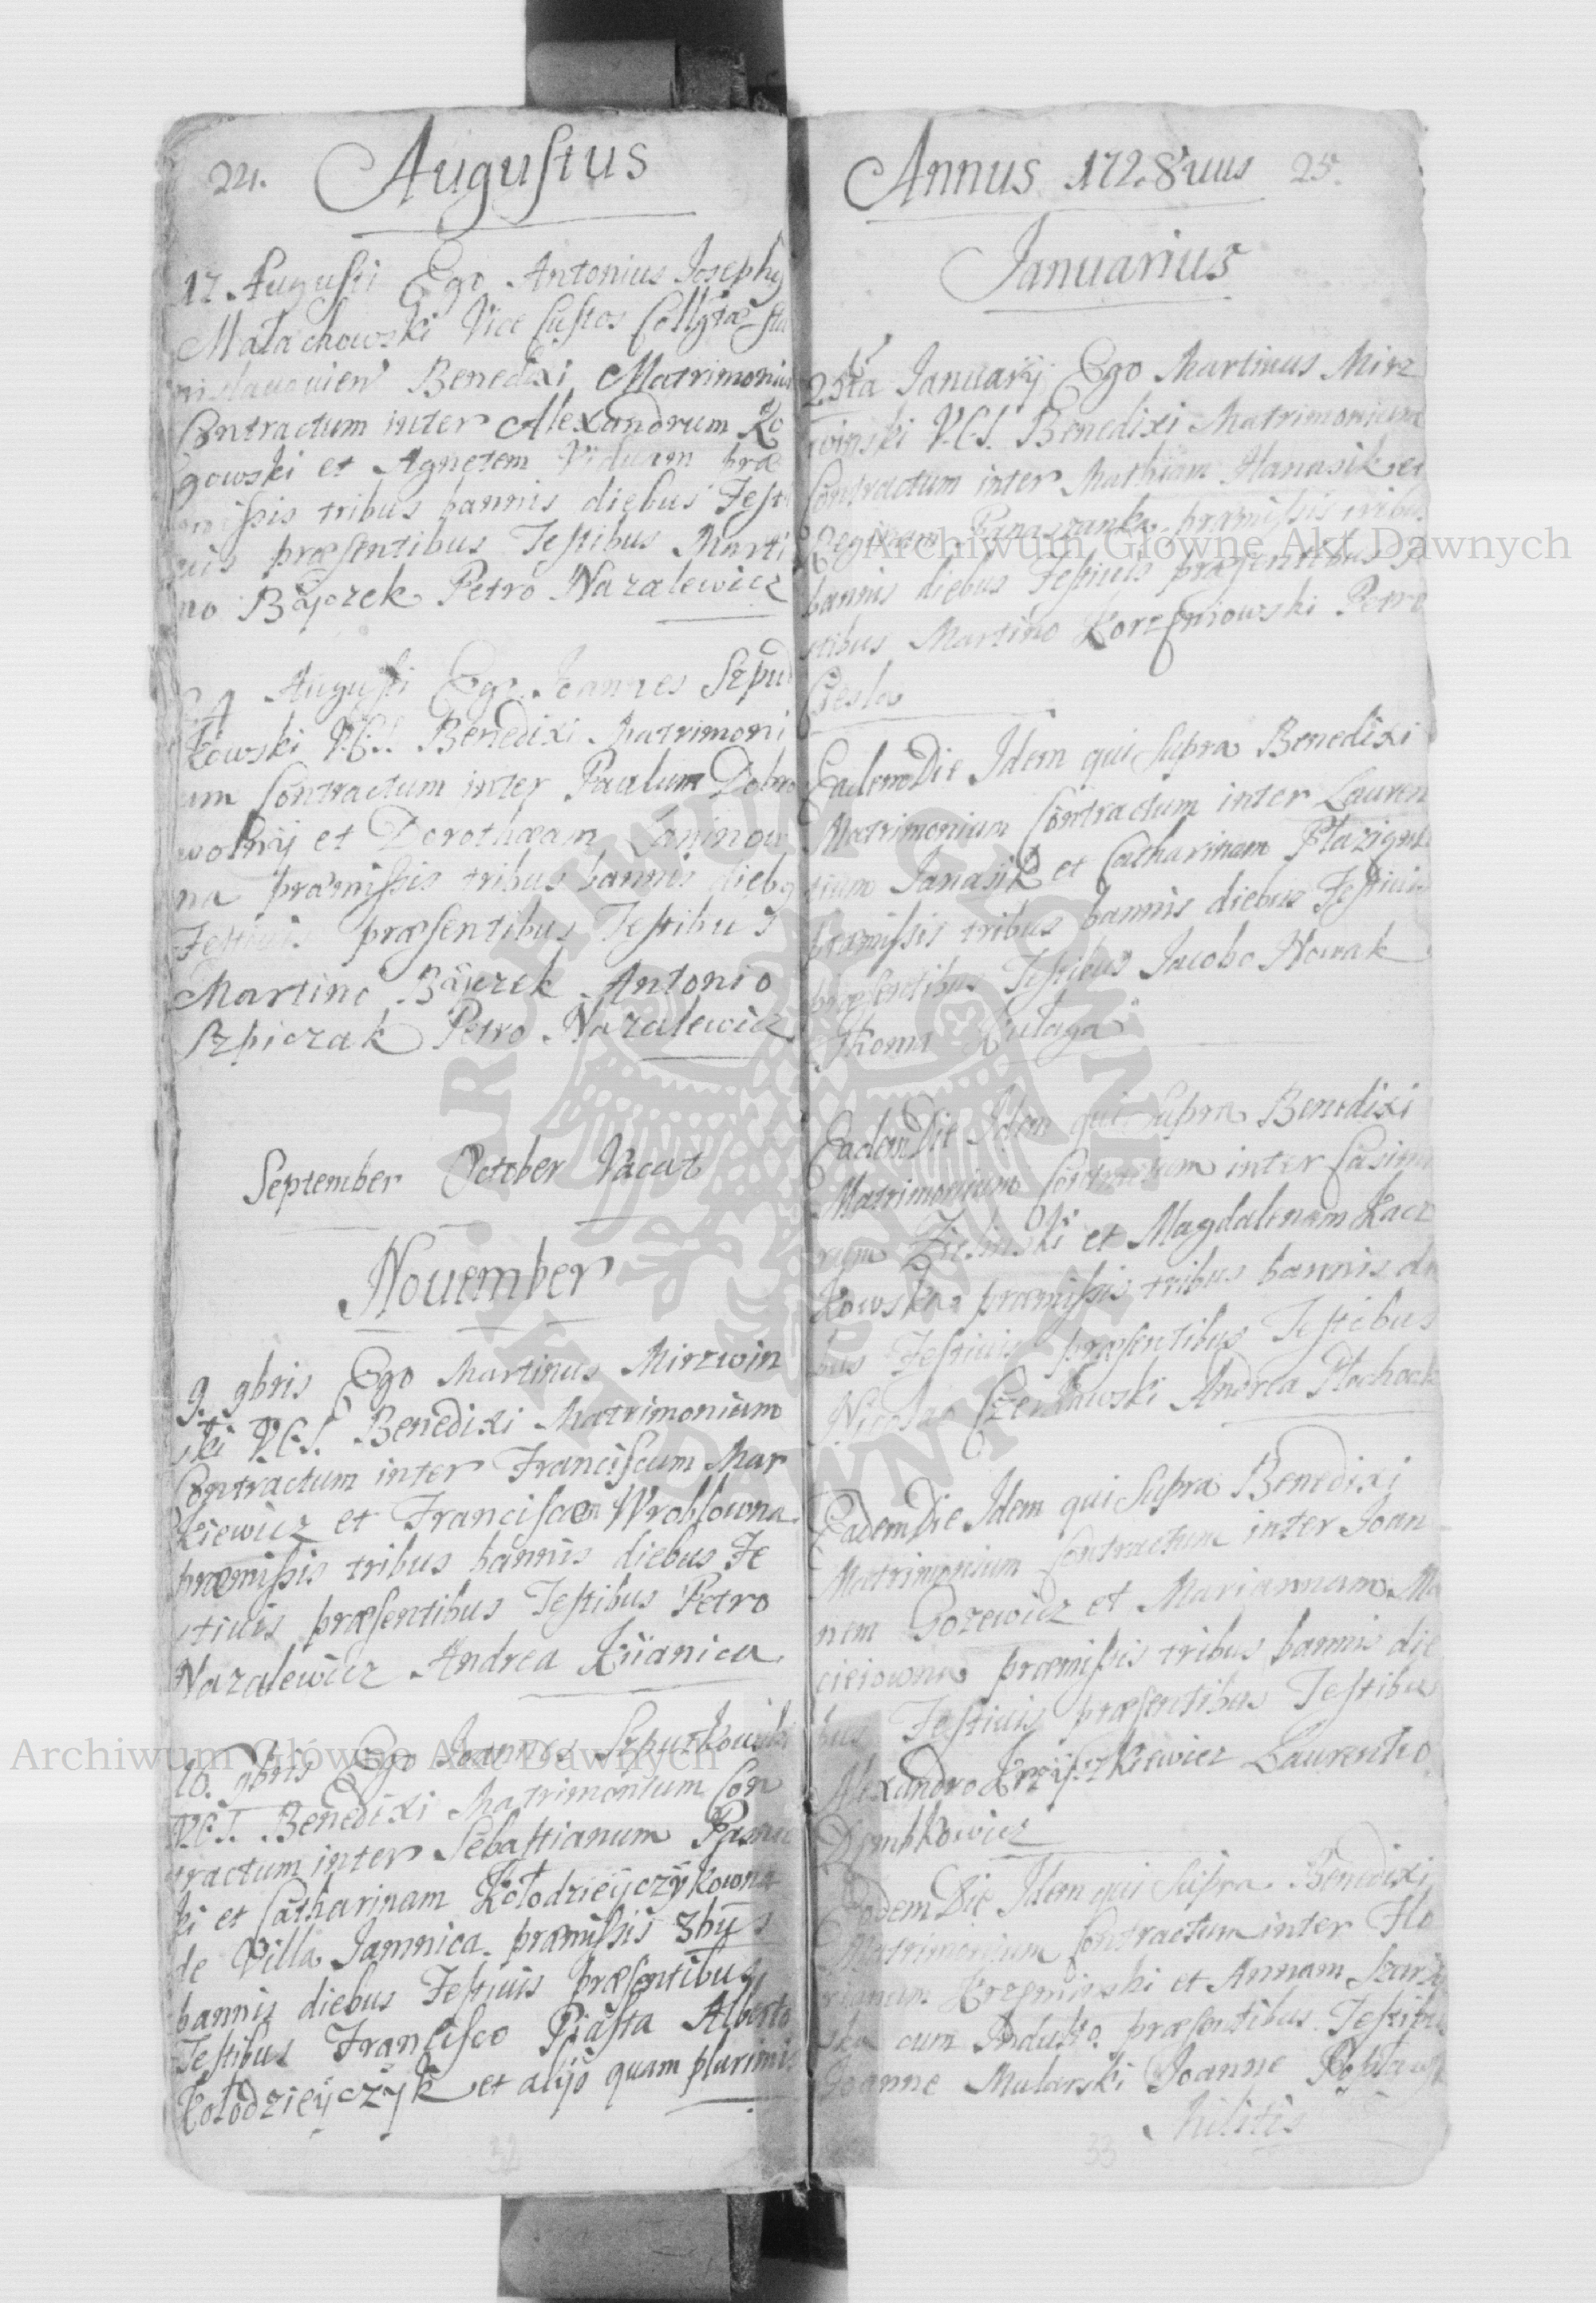 24. Augustus
17 Augusti Ego Antonius Josephus
Małachowski Vice Custos Collgtæ Sta
nislauouien Benedixi Matrimonium
Contractum inter Alexandrum Ro
gowski et Agnetem Viduam præ
missis tribus bannis diebus Festi
uis præsentibus Testibus Marti
no Bajorek Petro Nazalewicz
Augusti Ego Joannes Szput
kowski V.C.S. Benedixi Matrimoni
um Contractum inter Paulum Dobro
wolny et Dorothæam Laninow
na præmissis tribus bannis diebus
Festiuis præsentibus Testibus
Martino Bajorek Antonio
Szpiczak Petro Nazalewicz
September October Vacat
Nouember
9. 9bris Ego Martinus Mirzwin
ski V.C.S. Benedixi Matrimonium
Contractum inter Franciscum Mar
kiewicz et Franciscam Wroblowna
præmissis tribus bannis diebus Fe
stiuis præsentibus Testibus Petro
Nazalewicz Andrea Kijanica
16. 9bris Ego Joannes Szputkowski
V.C.S. Benedixi Matrimonium Con
tractum inter Sebastianum
ki et Catharinam Kołodzieyczykowna
de Villa Jamnica præmissis 3bus
bannis diebus Festiuis præsentibus
Testibus Francisco Piasta Alberto
Kołodzieyczyk et alijs quam plurimis
32
Annus 1728uus 25.
Januarius
25ta Januarij Ego Martinus Mirz
winski V.C.S. Benedixi Matrimonium
Contractum inter Mathiam Hanasik et
Reginam Banaszanka præmissis tribus
bannis diebus Festiuis præsentibus Te
stibus Martino Korzeniowski Petro
Ciesla
Eadem Die Idem qui Supra Benedixi
Matrimonium Contractum inter Lauren
tium Janasik et Catharinam
præmissis tribus bannis diebus Festiuis
præsentibus Testibus Jacobo Nowak
Thoma Kułaga
Eadem Die Idem qui Supra Benedixi
Matrimonium Contractum inter Casimi
rum Zielinski et Magdalenam Kacz
kowska præmissis tribus bannis die
bus Festiuis præsentibus Testibus
Nicolao Czerkawski Andrea Płochocki
Eadem Die Idem qui Supra Benedixi
Matrimonium Contractum inter Joan
nem Gozewicz et Mariannam Ma
cieiowna præmissis tribus bannis die
bus Festiuis præsentibus Testibus
Alexandro Krzyszkiewicz Laurentio
Dembkowicz
Eadem Die Idem qui Supra Benedixi
Matrimonium Contractum inter Flo
rianum Krzeminski et Annam Szarzy
ska cum Indulto præsentibus Testibus
Joanne Mularski Joanne
Militis
33
Archiwum Główne Akt Dawnych
Archiwum Główne Akt Dawnych
ARCHIWUM GŁÓWNE AKT DAWNYCH